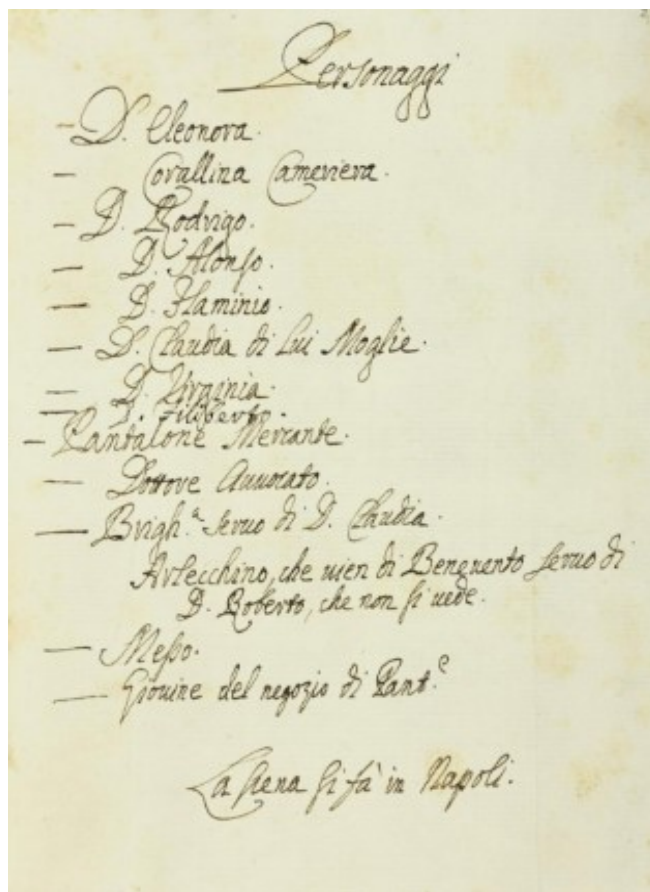 Personaggi
- D. Eleonora.
- Corallina Cameriera.
- D. Rodrigo.
- D. Alonso.
- D. Flaminio.
- D. Claudia di lui Moglie.
- D. Virginia.
- D. Filiberto.
- Pantalone Mercante.
- Dottore Auuocato.
- Brigh.ª seruo di D. Claudia.
Arlecchino, che uien di Beneuento seruo di
D. Roberto, che non si uede.
- Messo.
- Giouine del negozio di Pant.e
La scena si fà in Napoli.